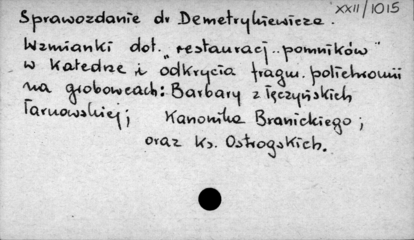 XXII/1015
Sprawozdanie dr Demetrykiewicza.
Wzmianki dot. "restauracj..pomników"
w Katedrze i "odkrycia fragm. polichromii
na grobowcach: Barbary z Tęczyńskich
Tarnowskiej; Kanonika Branickiego;
oraz Ks. Ostrogskich.